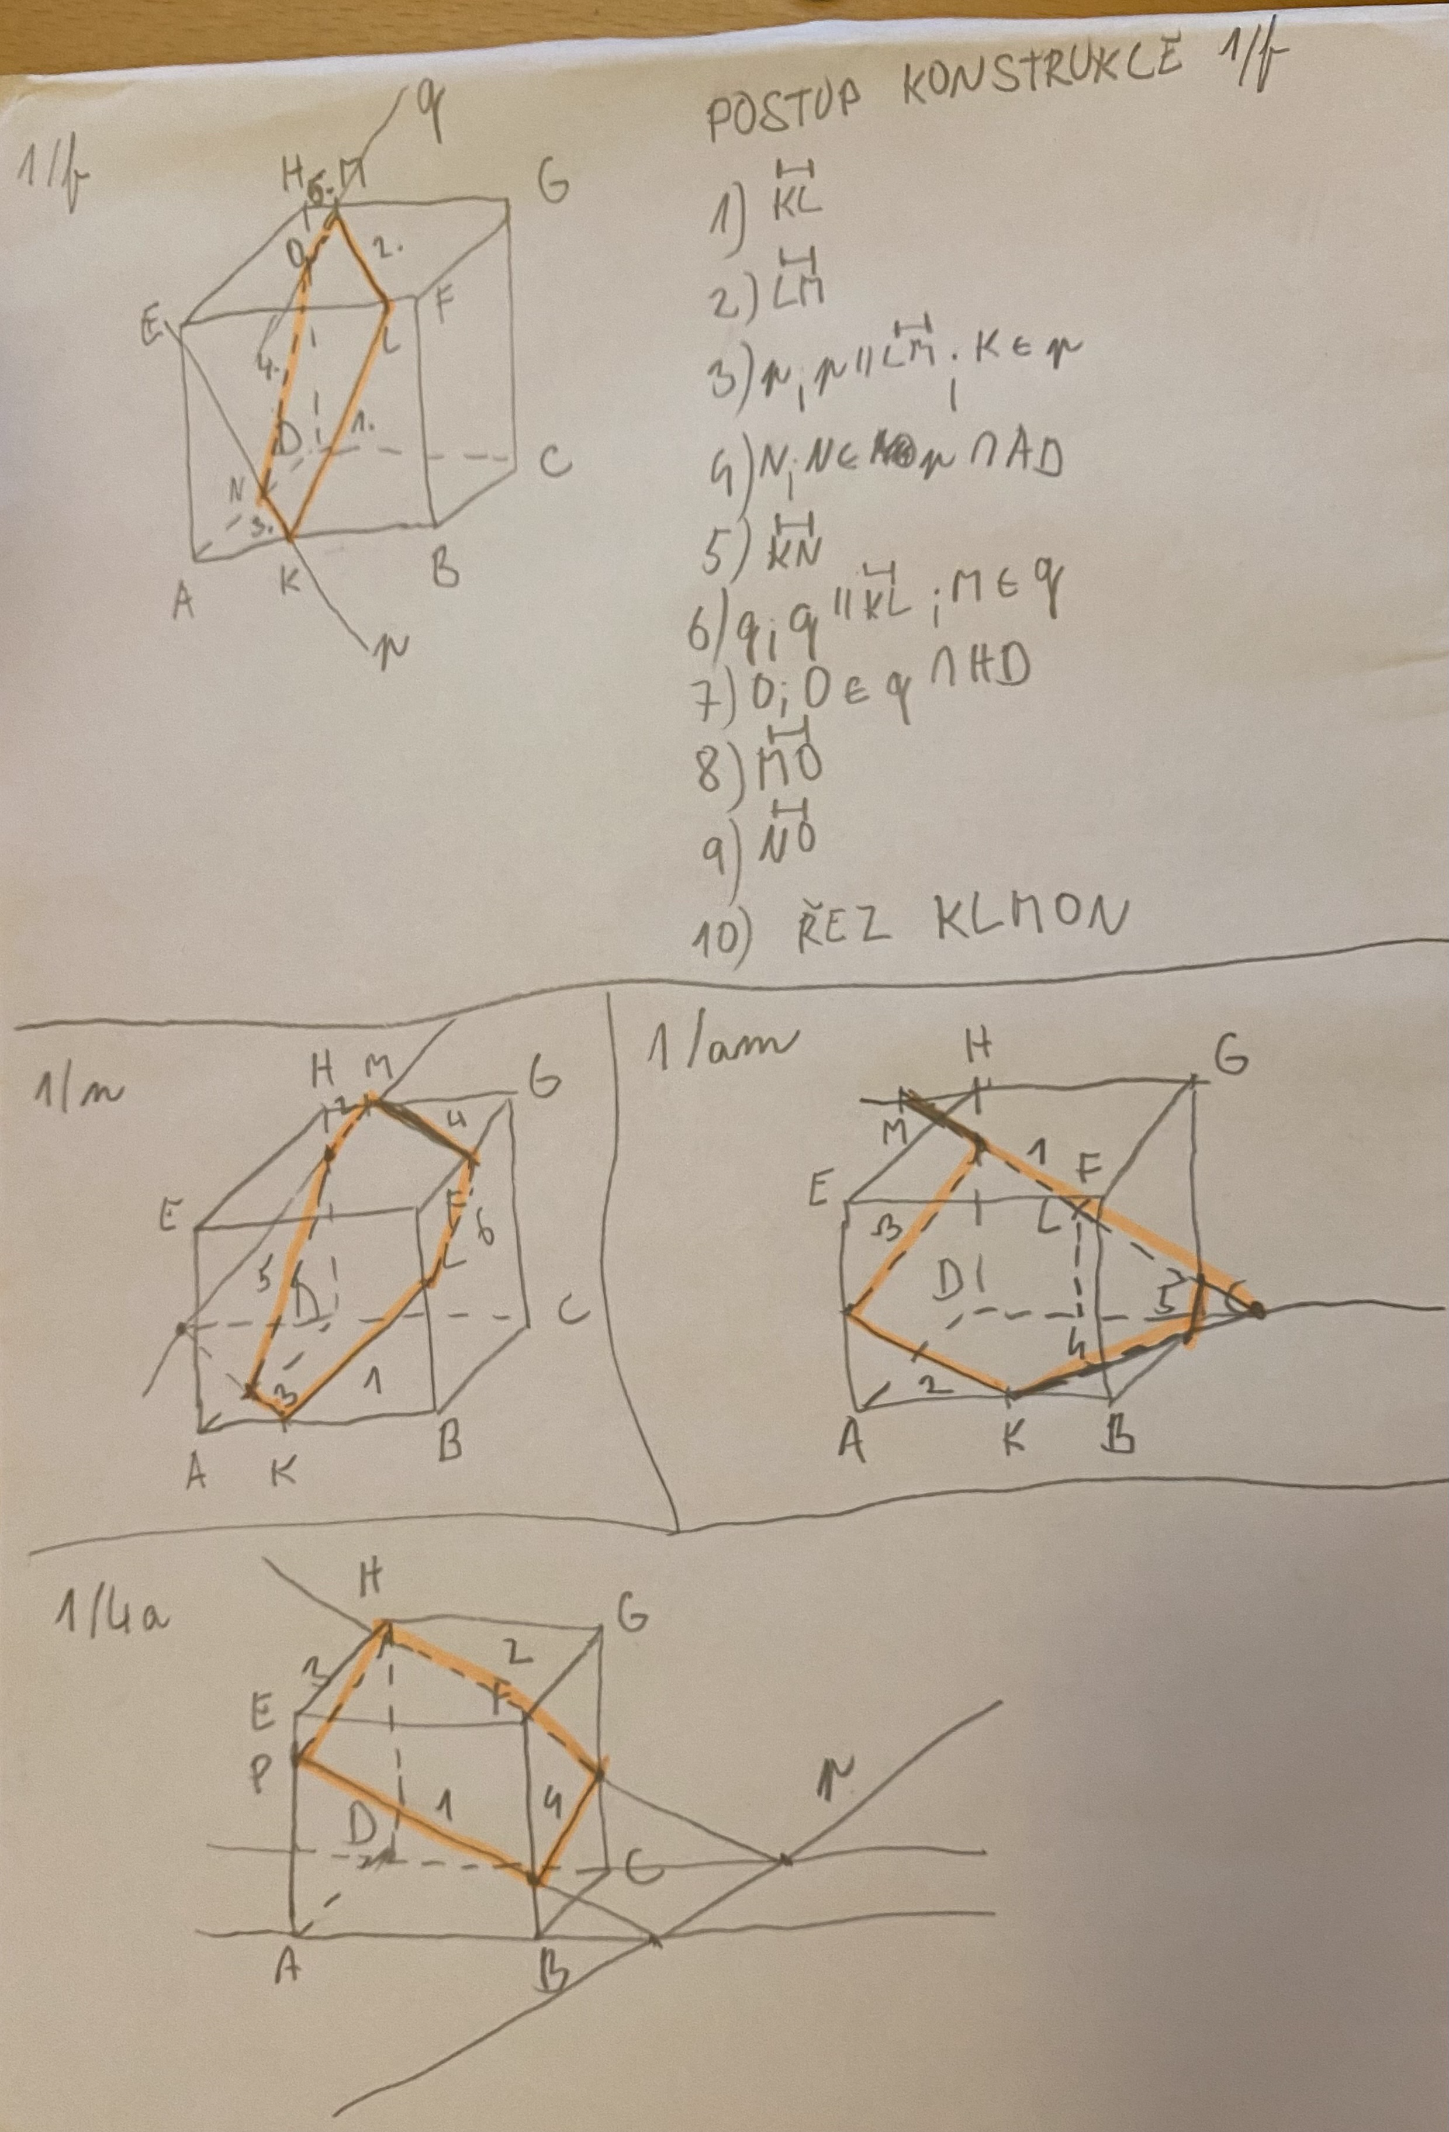 1/f
POSTUP KONSTRUKCE 1/f
q
H 5. M G
O 2.
E F
L
4.
D 1.
C
N
3.
A K B
p
1) KL
2) LM
3) p; p || LM; K ∈ p
4) N; N ∈ p ∩ AD
5) KN
6) q; q || KL; M ∈ q
7) O; O ∈ q ∩ HD
8) MO
9) NO
10) ŘEZ KLMON
1/n
H M G
2 4
E F
L 6
5 D C
3 1
A K B
1/am
H G
M 1
E F
3 L
D 5 C
4
2
A K B
1/4a
H G
3 2
E F
P
1 4
D C
A B
p